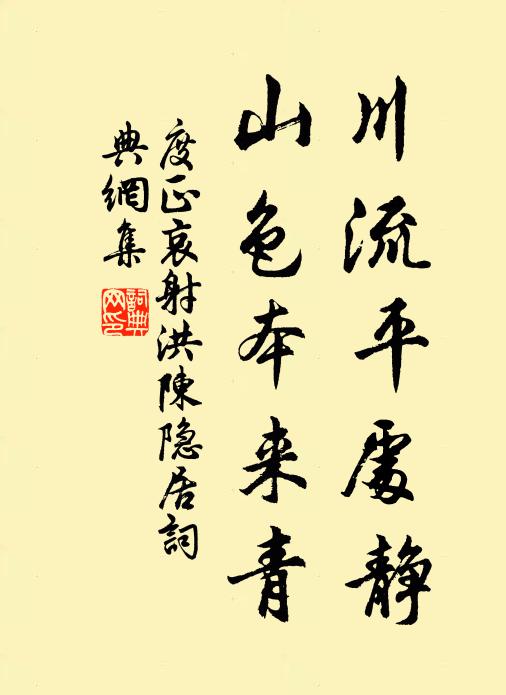 川流平處静
山色本来青
度正哀射洪陳隐居詞
典網集
詞典網印